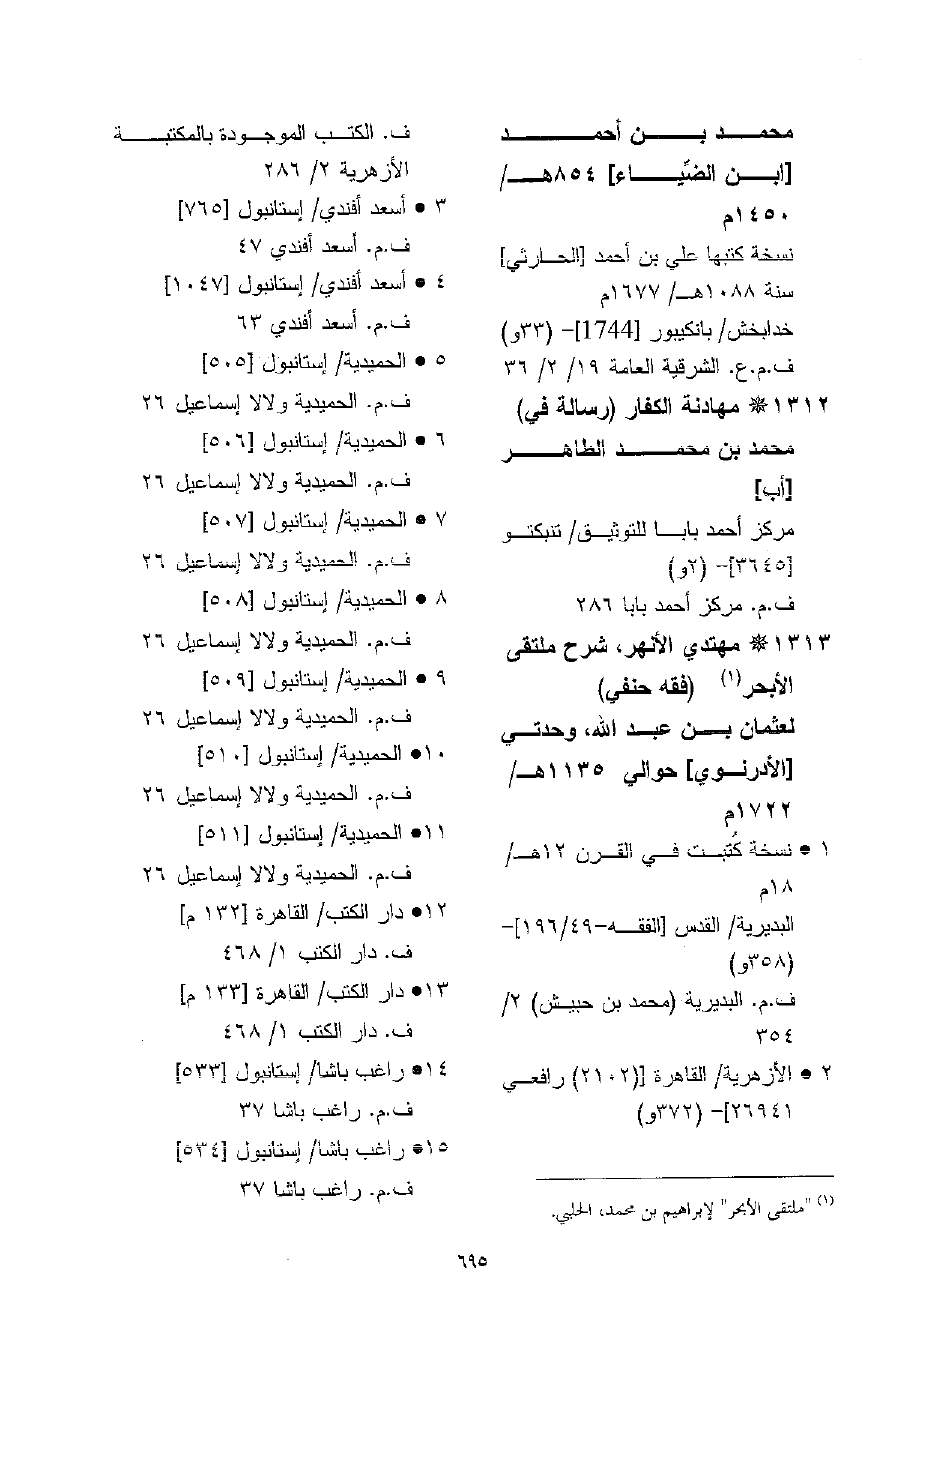 محمد بن أحمد
[ابن الضّياء] ٨٥٤هـ/
١٤٥٠م
نسخة كتبها علي بن أحمد [الحارثي]
سنة ١٠٨٨هـ/ ١٦٧٧م
خدابخش/ بانكيبور [1744]- (٣٣و)
ف.م.ع. الشرقية العامة ١٩/ ٢/ ٣٦
١٣١٢❋ مهادنة الكفار (رسالة في)
محمد بن محمد الطاهر
[أب]
مركز أحمد بابا للتوثيق/ تنبكتو
[٣٦٤٥]- (٢و)
ف.م. مركز أحمد بابا ٢٨٦
١٣١٣❋ مهتدي الأنهر، شرح ملتقى
الأبحر(١) (فقه حنفي)
لعثمان بن عبد الله، وحدتي
[الأدرنوي] حوالي ١١٣٥هـ/
١٧٢٢م
١ • نسخة كُتبت في القرن ١٢هـ/
١٨م
البديرية/ القدس [الفقه-١٩٦/٤٩]-
(٣٥٨و)
ف.م. البديرية (محمد بن حبيش) ٢/
٣٥٤
٢ • الأزهرية/ القاهرة [(٢١٠٢) رافعي
٢٦٩٤١]- (٣٧٢و)
(١) "ملتقى الأبحر" لإبراهيم بن محمد، الحلبي.
ف. الكتب الموجودة بالمكتبة
الأزهرية ٢/ ٢٨٦
٣ • أسعد أفندي/ إستانبول [٧٦٥]
ف.م. أسعد أفندي ٤٧
٤ • أسعد أفندي/ إستانبول [١٠٤٧]
ف.م. أسعد أفندي ٦٣
٥ • الحميدية/ إستانبول [٥٠٥]
ف.م. الحميدية ولالا إسماعيل ٢٦
٦ • الحميدية/ إستانبول [٥٠٦]
ف.م. الحميدية ولالا إسماعيل ٢٦
٧ • الحميدية/ إستانبول [٥٠٧]
ف.م. الحميدية ولالا إسماعيل ٢٦
٨ • الحميدية/ إستانبول [٥٠٨]
ف.م. الحميدية ولالا إسماعيل ٢٦
٩ • الحميدية/ إستانبول [٥٠٩]
ف.م. الحميدية ولالا إسماعيل ٢٦
١٠• الحميدية/ إستانبول [٥١٠]
ف.م. الحميدية ولالا إسماعيل ٢٦
١١• الحميدية/ إستانبول [٥١١]
ف.م. الحميدية ولالا إسماعيل ٢٦
١٢• دار الكتب/ القاهرة [١٣٢ م]
ف. دار الكتب ١/ ٤٦٨
١٣• دار الكتب/ القاهرة [١٣٣ م]
ف. دار الكتب ١/ ٤٦٨
١٤• راغب باشا/ إستانبول [٥٣٣]
ف.م. راغب باشا ٣٧
١٥• راغب باشا/ إستانبول [٥٣٤]
ف.م. راغب باشا ٣٧
٦٩٥